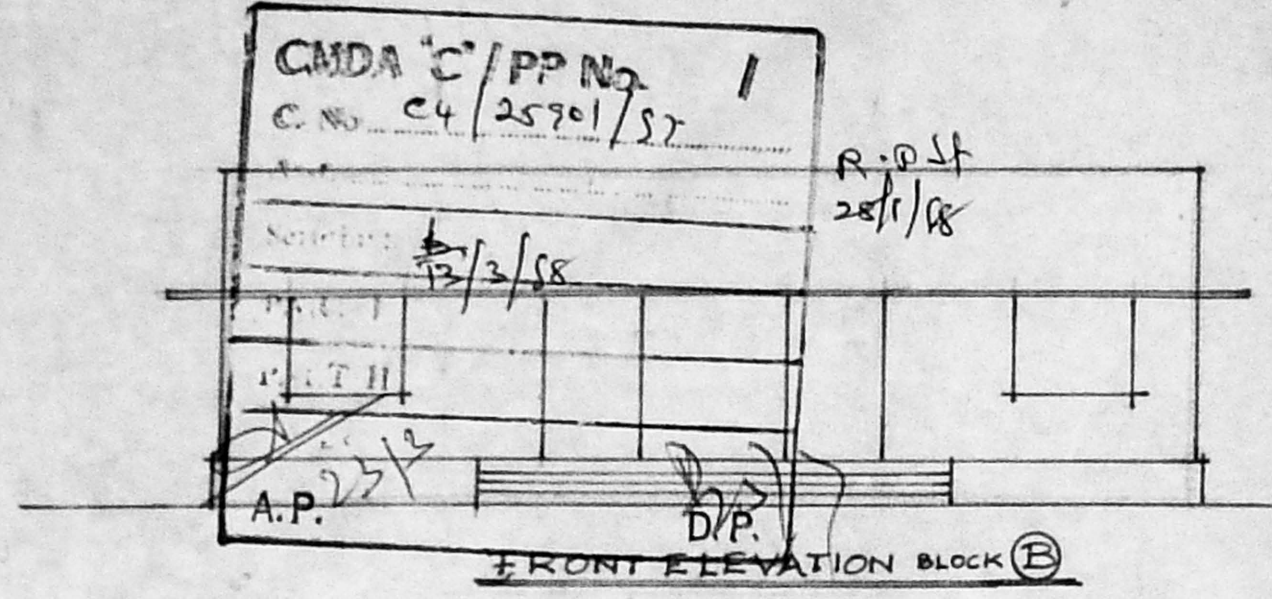 CMDA "C" / PP No. 1
C. No. C4/25901/97
R.P st
28/1/98
13/3/98
PART II
23/3
A.P.
D.P.
FRONT ELEVATION BLOCK B